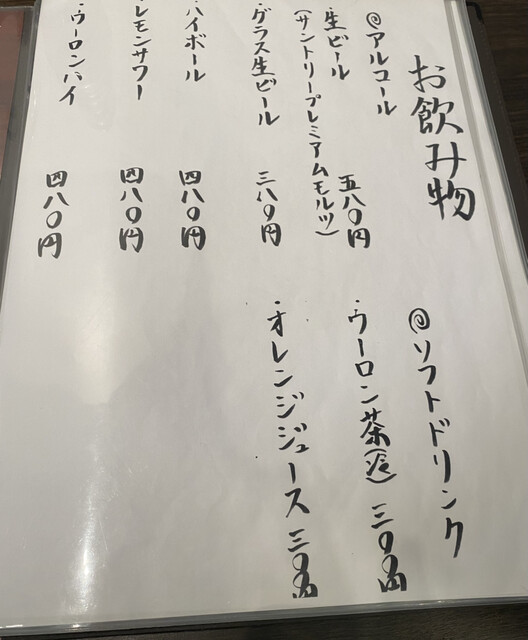 お飲み物
@アルコール
・生ビール 五八〇円
(サントリープレミアムモルツ)
・グラス生ビール 三八〇円
・ハイボール 四八〇円
・レモンサワー 四八〇円
・ウーロンハイ 四八〇円
@ソフトドリンク
・ウーロン茶 三〇〇円
・オレンジジュース 三〇〇円